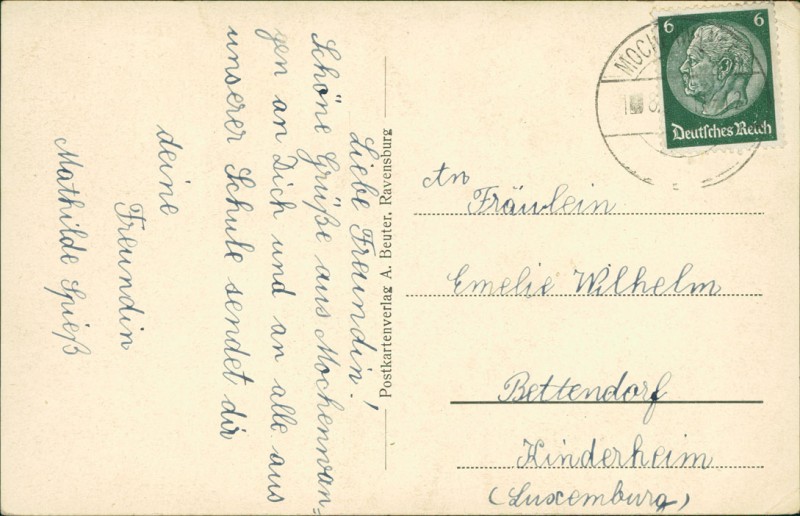 Liebe Freundin!
Schöne Grüße aus Mochenwan=
gen an Dich und an alle aus
unserer Schule sendet dir
deine
Freundin
Mathilde Spieß
Postkartenverlag A. Beuter, Ravensburg
6 6
Deutsches Reich
An
Fräulein
Emelie Wilhelm
Bettendorf
Kinderheim
(Luxemburg)